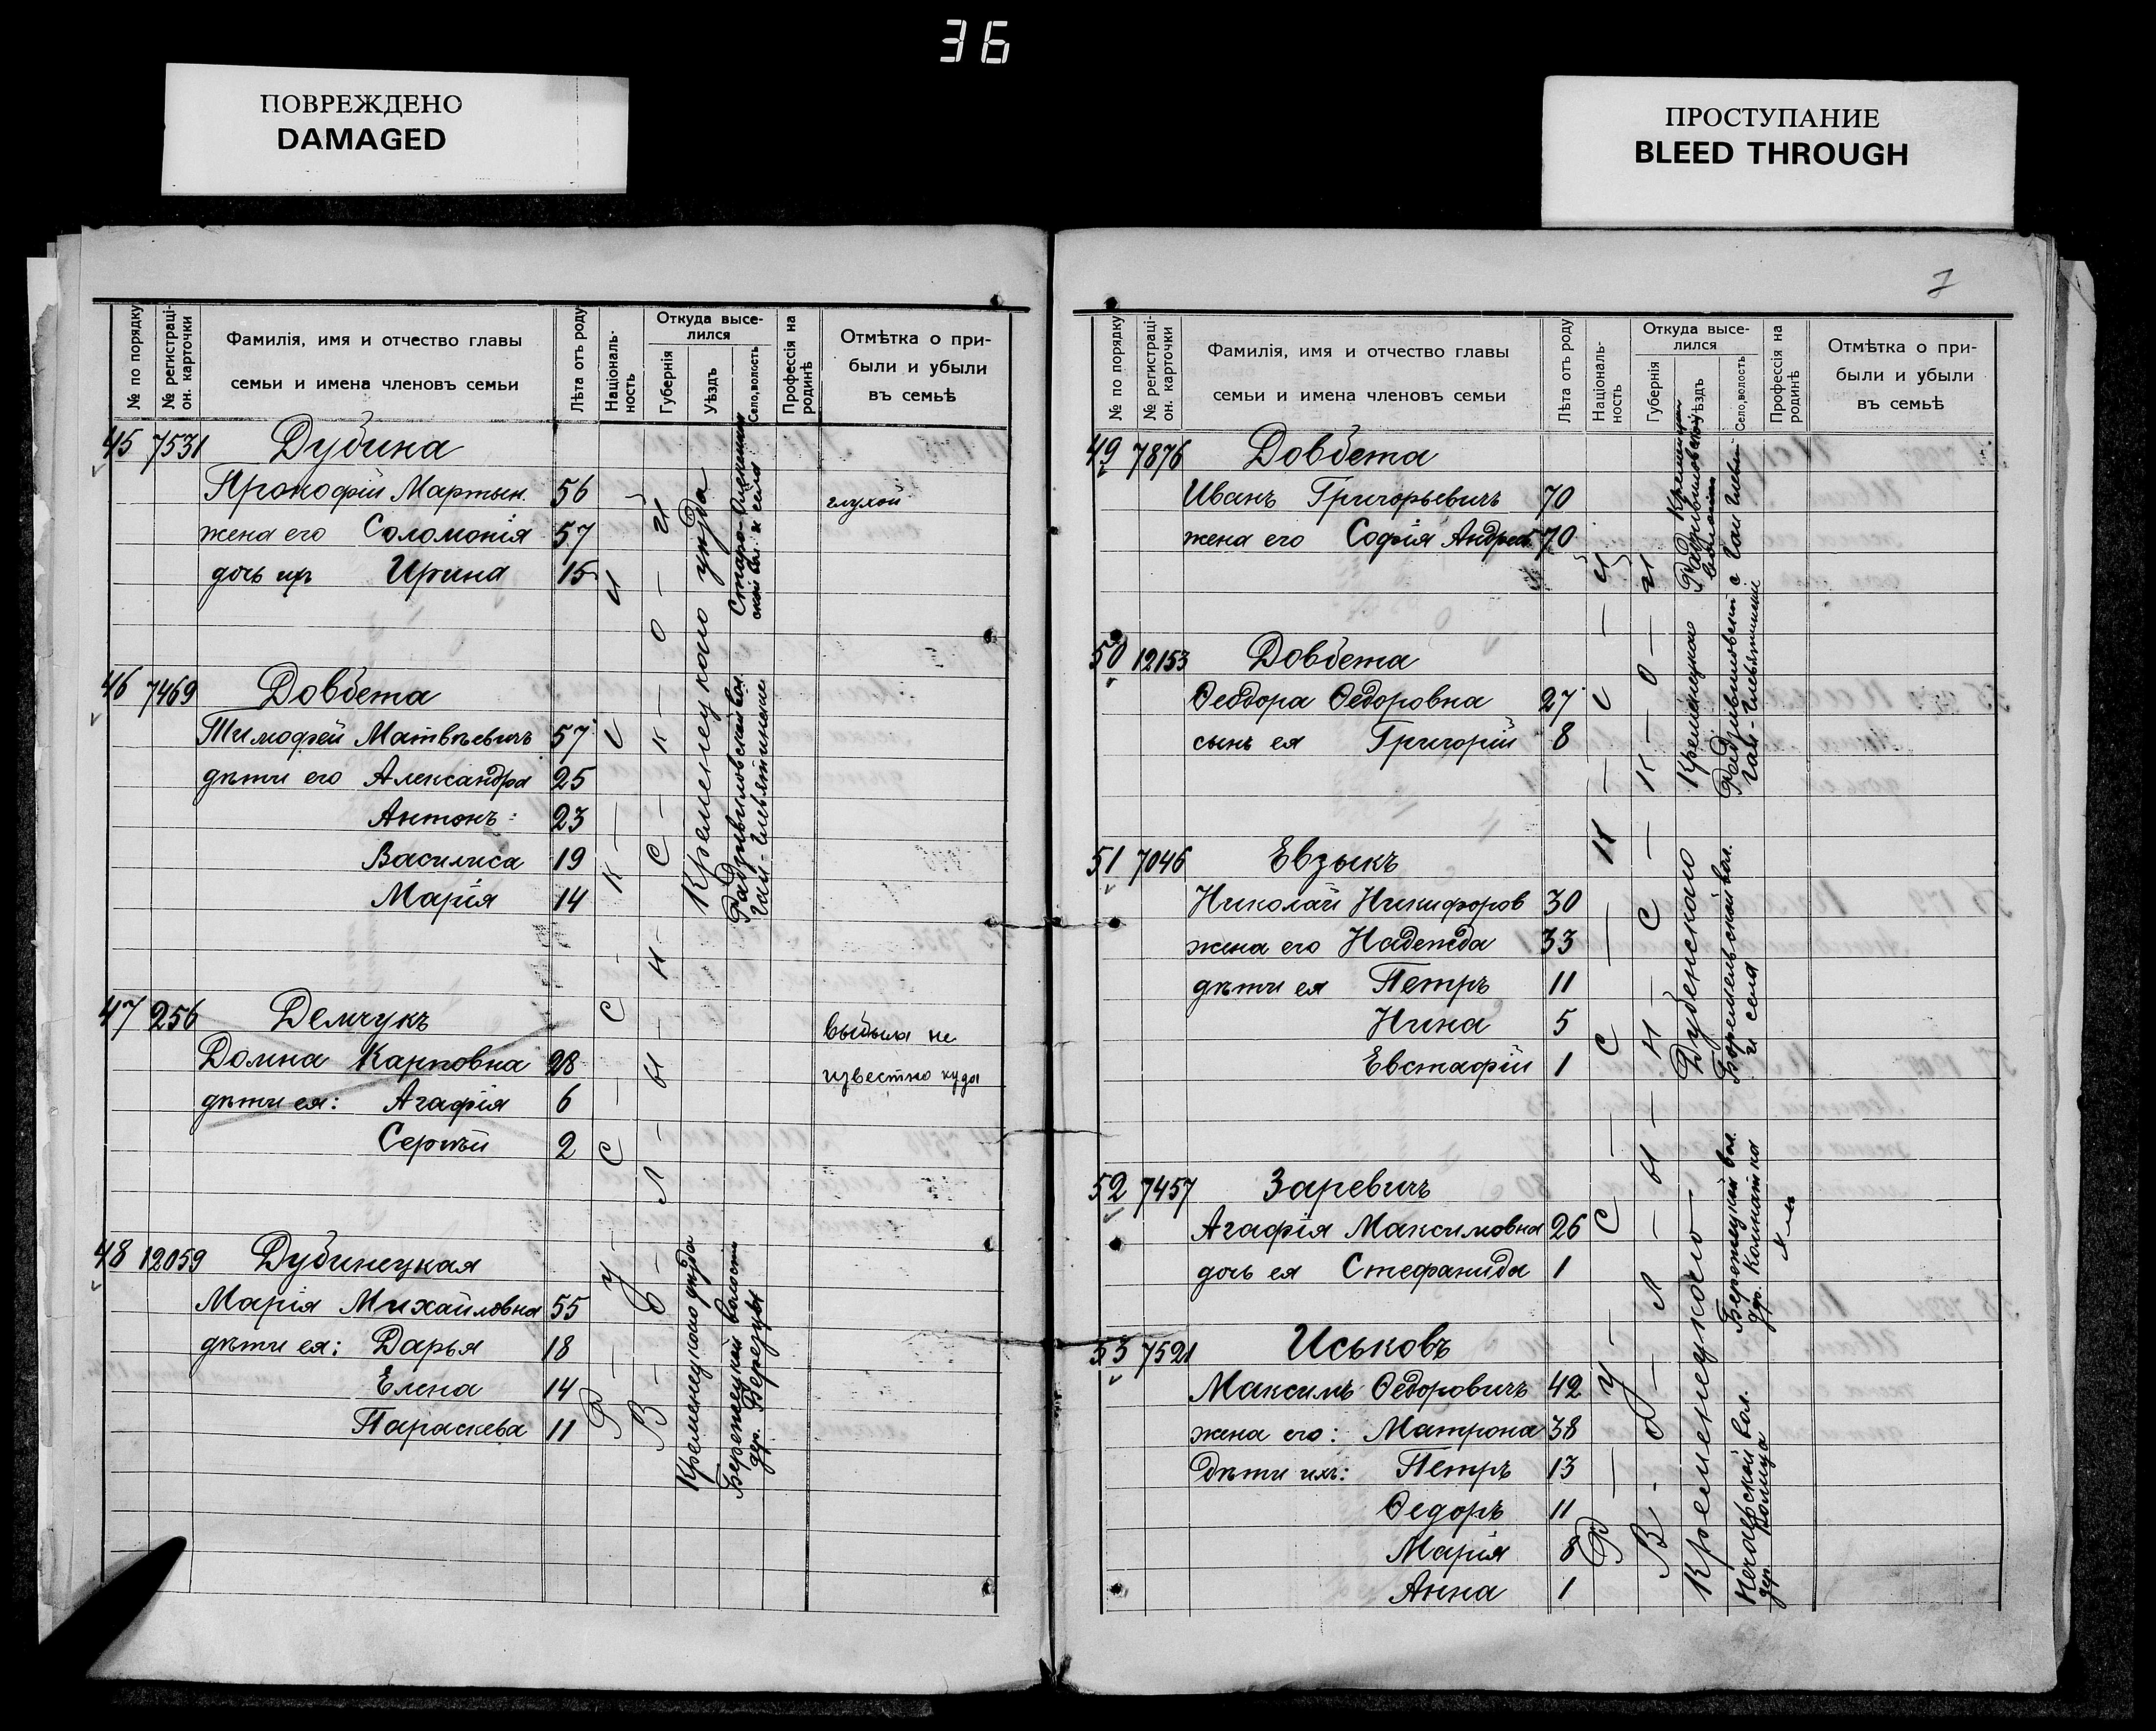 36
ПОВРЕЖДЕНО
DAMAGED
ПРОСТУПАНИЕ
BLEED THROUGH
№ по порядку
№ регистраціон. карточки
Фамилія, имя и отчество главы
семьи и имена членовъ семьи
Лѣта отъ роду
Національность
Откуда выселился
Губернія
Уѣздъ
Село, волость
Профессія на родинѣ
Отмѣтка о при-
были и убыли
въ семьѣ
45 7531 Дубина
Прокофій Мартын. 56 глухой
жена его Соломонія 57
дочь их Ирина 15
46 7469 Довбета
Тимофей Матвѣевичъ 57
дѣти его Александра 25
Антонъ 23
Василиса 19
Марія 14
47 256 Демчукъ
выбыла не
Домна Карповна 28
известно куда
дѣти ея: Агафія 6
Сергѣй 2
48 12059 Дубинецкая
Марія Михайловна 55
дѣти ея: Дарья 18
Елена 14
Параскева 11
Р у с с к и
В о л ы н с к о й
Кременецкого уѣзда
Радзивиловской вол.
Кременецкого уѣзда
Берегецкой волости
дер. Березцы
7
№ по порядку
№ регистраціон. карточки
Фамилія, имя и отчество главы
семьи и имена членовъ семьи
Лѣта отъ роду
Національность
Откуда выселился
Губернія
Уѣздъ
Село, волость
Профессія на родинѣ
Отмѣтка о при-
были и убыли
въ семьѣ
49 7876 Довбета
Иванъ Григорьевичъ 70
жена его Софія Андреев. 70
50 12153 Довбета
Ѳеодора Ѳедоровна 27
сынъ ея Григорій 8
51 7046 Евзыкъ
Николай Никифоров 30
жена его Надежда 33
дѣти ея Петръ 11
Нина 5
Евстафій 1
52 7457 Заревичъ
Агафія Максимовна 26
дочь ея Стефанида 1
53 7521 Иськовъ
Максимъ Ѳедоровичъ 42
жена его: Матрона 38
Дѣти ихъ: Петръ 13
Ѳедоръ 11
Марія 8
Анна 1
Р у с с к и й
В о л ы н с к о й
Кременецкого
Дубенского
Боремельской вол.
и села
Кременецкого